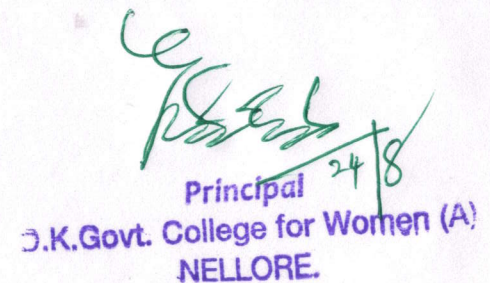 24/8
Principal
D.K.Govt. College for Women (A)
NELLORE.